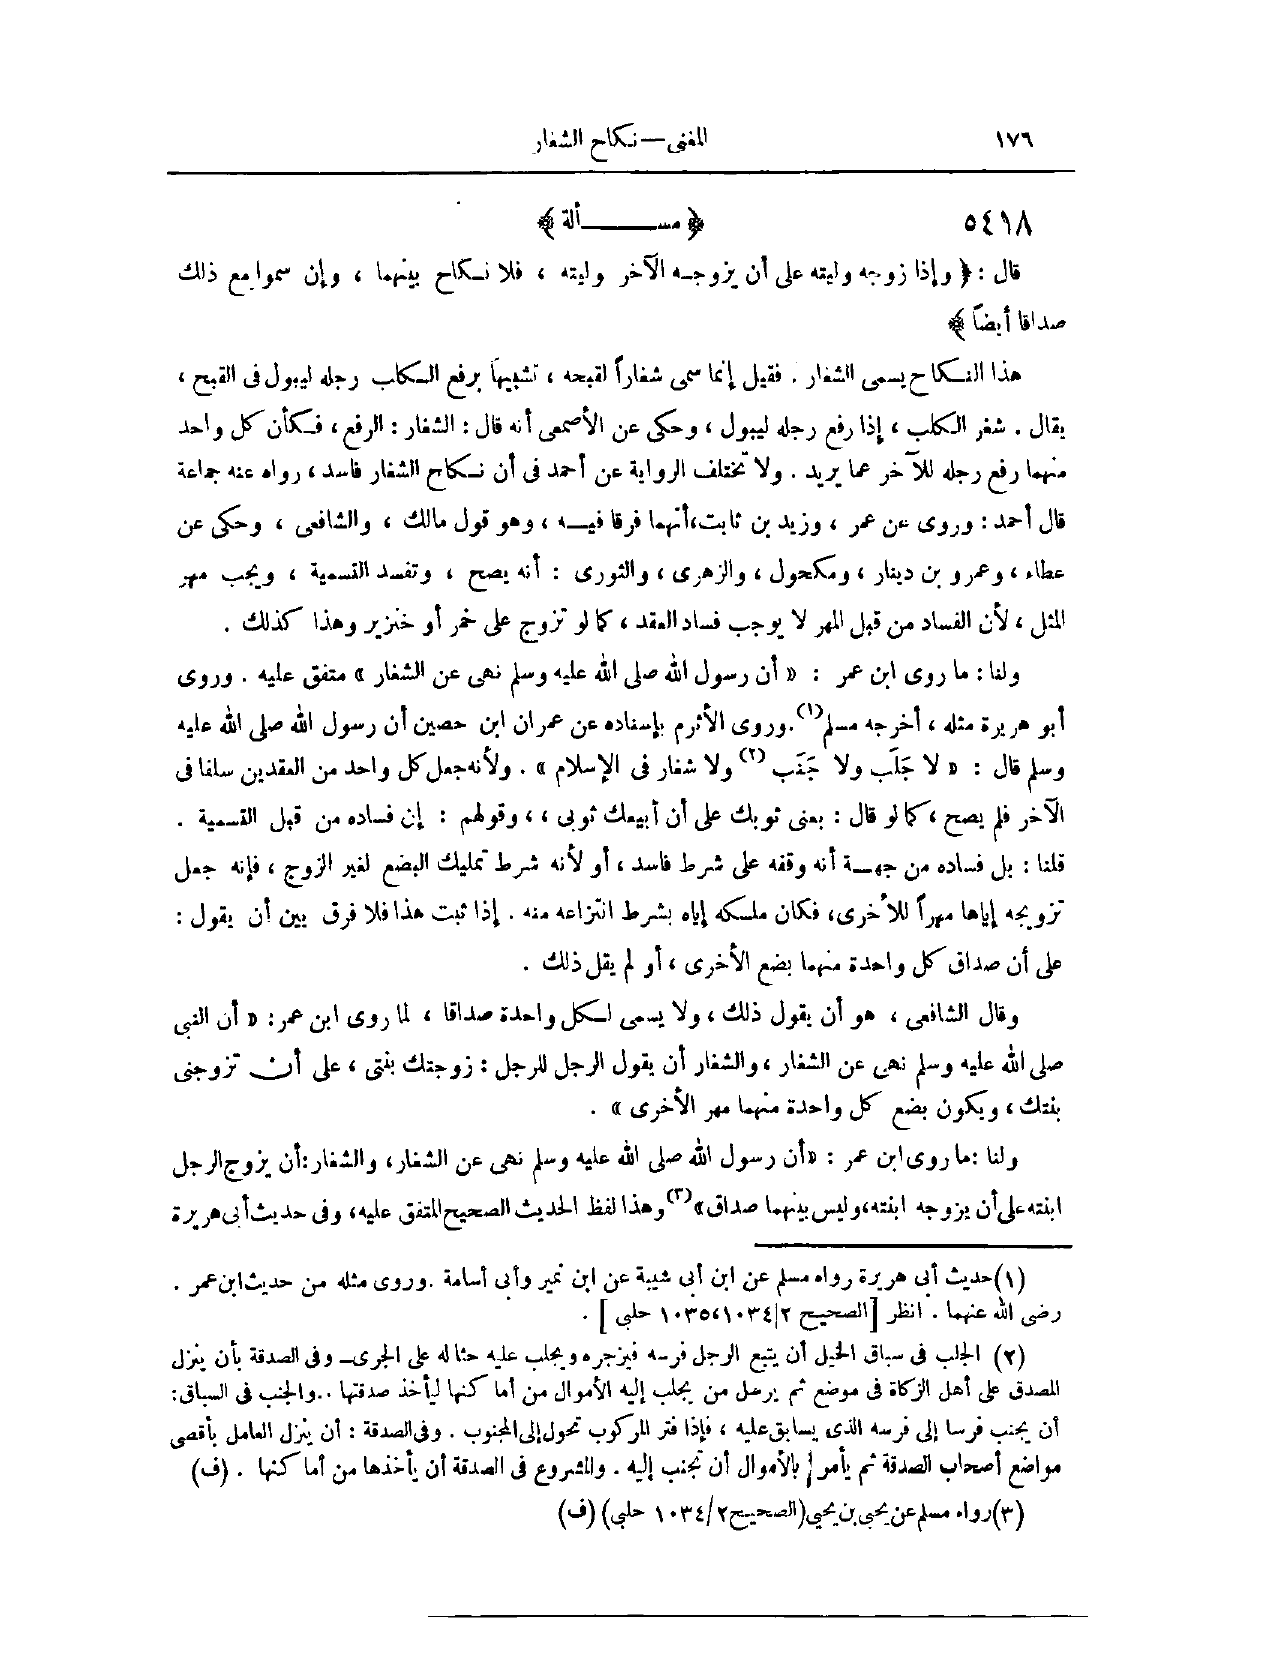 ١٧٦
المغنى — نكاح الشغار
٥٤١٨
﴿ مســـــألة ﴾
قال : ﴿ وإذا زوجه وليته على أن يزوجه الآخر وليته ، فلا نكاح بينهما ، وإن سموا مع ذلك
صداقا أيضاً ﴾
هذا النكاح يسمى الشغار . فقيل إنما سمى شغاراً لقبحه ، تشبيهاً برفع الكلب رجله ليبول فى القبح ،
يقال . شغر الكلب ، إذا رفع رجله ليبول ، وحكى عن الأصمعى أنه قال : الشغار : الرفع ، فكأن كل واحد
منهما رفع رجله للآخر عما يريد . ولا تختلف الرواية عن أحمد فى أن نكاح الشغار فاسد ، رواه عنه جماعة
قال أحمد : وروى عن عمر ، وزيد بن ثابت ، أنهما فرقا فيه ، وهو قول مالك ، والشافعى ، وحكى عن
عطاء ، وعمرو بن دينار ، ومكحول ، والزهرى ، والثورى : أنه يصح ، وتفسد التسمية ، ويجب مهر
المثل ، لأن الفساد من قبل المهر لا يوجب فساد العقد ، كما لو تزوج على خمر أو خنزير وهذا كذلك .
ولنا : ما روى ابن عمر : « أن رسول الله صلى الله عليه وسلم نهى عن الشغار » متفق عليه . وروى
أبو هريرة مثله ، أخرجه مسلم (١) . وروى الأثرم بإسناده عن عمران ابن حصين أن رسول الله صلى الله عليه
وسلم قال : « لا جَلَب ولا جَنَب (٢) ولا شغار فى الإسلام » . ولأنه جعل كل واحد من العقدين سلفا فى
الآخر فلم يصح ، كما لو قال : بعنى ثوبك على أن أبيعك ثوبى ، ، وقولهم : إن فساده من قبل التسمية .
قلنا : بل فساده من جهة أنه وقفه على شرط فاسد ، أو لأنه شرط تمليك البضع لغير الزوج ، فإنه جعل
تزويجه إياها مهراً للأخرى ، فكان ملكه إياه بشرط انتزاعه منه . إذا ثبت هذا فلا فرق بين أن يقول :
على أن صداق كل واحدة منهما بضع الأخرى ، أو لم يقل ذلك .
وقال الشافعى ، هو أن يقول ذلك ، ولا يسمى لكل واحدة صداقا ، لما روى ابن عمر : « أن النبى
صلى الله عليه وسلم نهى عن الشغار ، والشغار أن يقول الرجل للرجل : زوجتك بنتى ، على أن تزوجنى
بنتك ، ويكون بضع كل واحدة منهما مهر الأخرى » .
ولنا : ما روى ابن عمر : «أن رسول الله صلى الله عليه وسلم نهى عن الشغار ، والشغار : أن يزوج الرجل
ابنته على أن يزوجه ابنته ، وليس بينهما صداق » (٣) وهذا لفظ الحديث الصحيح المتفق عليه ، وفى حديث أبى هريرة
(١) حديث أبى هريرة رواه مسلم عن ابن أبى شيبة عن ابن نمير وأبى أسامة . وروى مثله من حديث ابن عمر .
رضى الله عنهما . انظر [الصحيح ١٠٣٤/٢ ، ١٠٣٥ حلبى ] .
(٢) الجلب فى سباق الخيل أن يتبع الرجل فرسه فيزجره ويجلب عليه حثا له على الجرى — وفى الصدقة بأن ينزل
المصدق على أهل الزكاة فى موضع ثم يرسل من يجلب إليه الأموال من أماكنها ليأخذ صدقتها .. والجنب فى السباق :
أن يجنب فرسا إلى فرسه الذى يسابق عليه ، فإذا فتر المركوب تحول إلى المجنوب . وفى الصدقة : أن ينزل العامل بأقصى
مواضع أصحاب الصدقة ثم يأمر بالأموال أن تجنب إليه . والمشروع فى الصدقة أن يأخذها من أماكنها . (ف)
(٣) رواه مسلم عن يحيى بن يحيي (الصحيح ١٠٣٤/٢ حلبى) (ف)